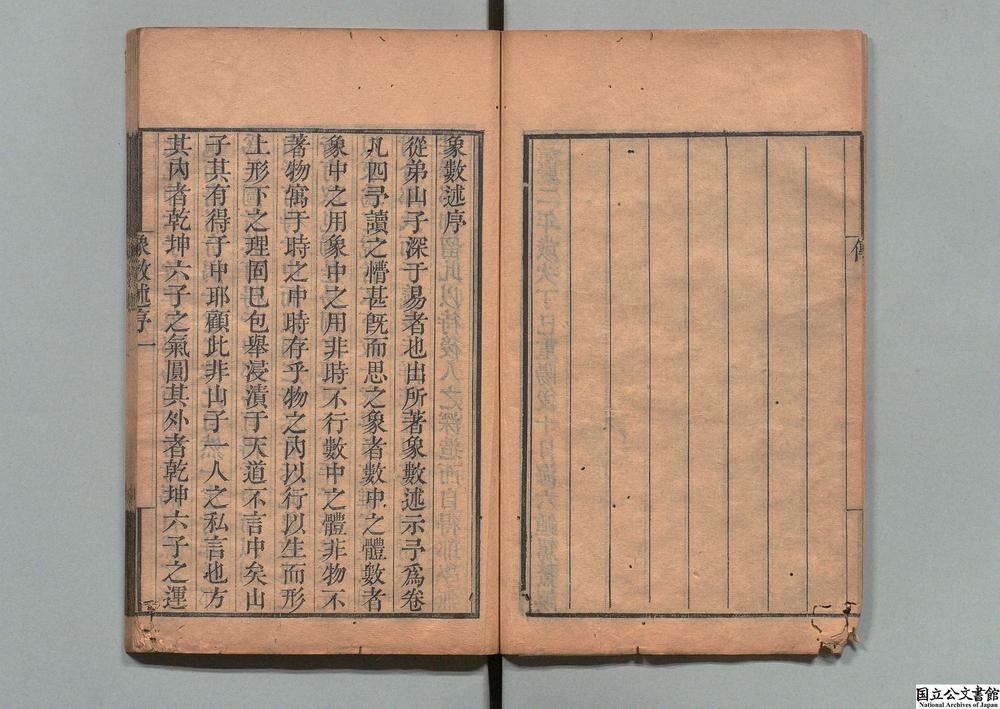 象數述序
從弟山子深于易者也出所著象數述示予爲卷
凡四予讀之懵甚旣而思之象者數中之體數者
象中之用象中之用非時不行數中之體非物不
著物寓于時之中時存乎物之內以行以生而形
上形下之理固已包舉浸漬于天道不言中矣山
子其有得于中耶顧此非山子一人之私言也方
其內者乾坤六子之氣圓其外者乾坤六子之運
象數述序 一
国立公文書館
National Archives of Japan